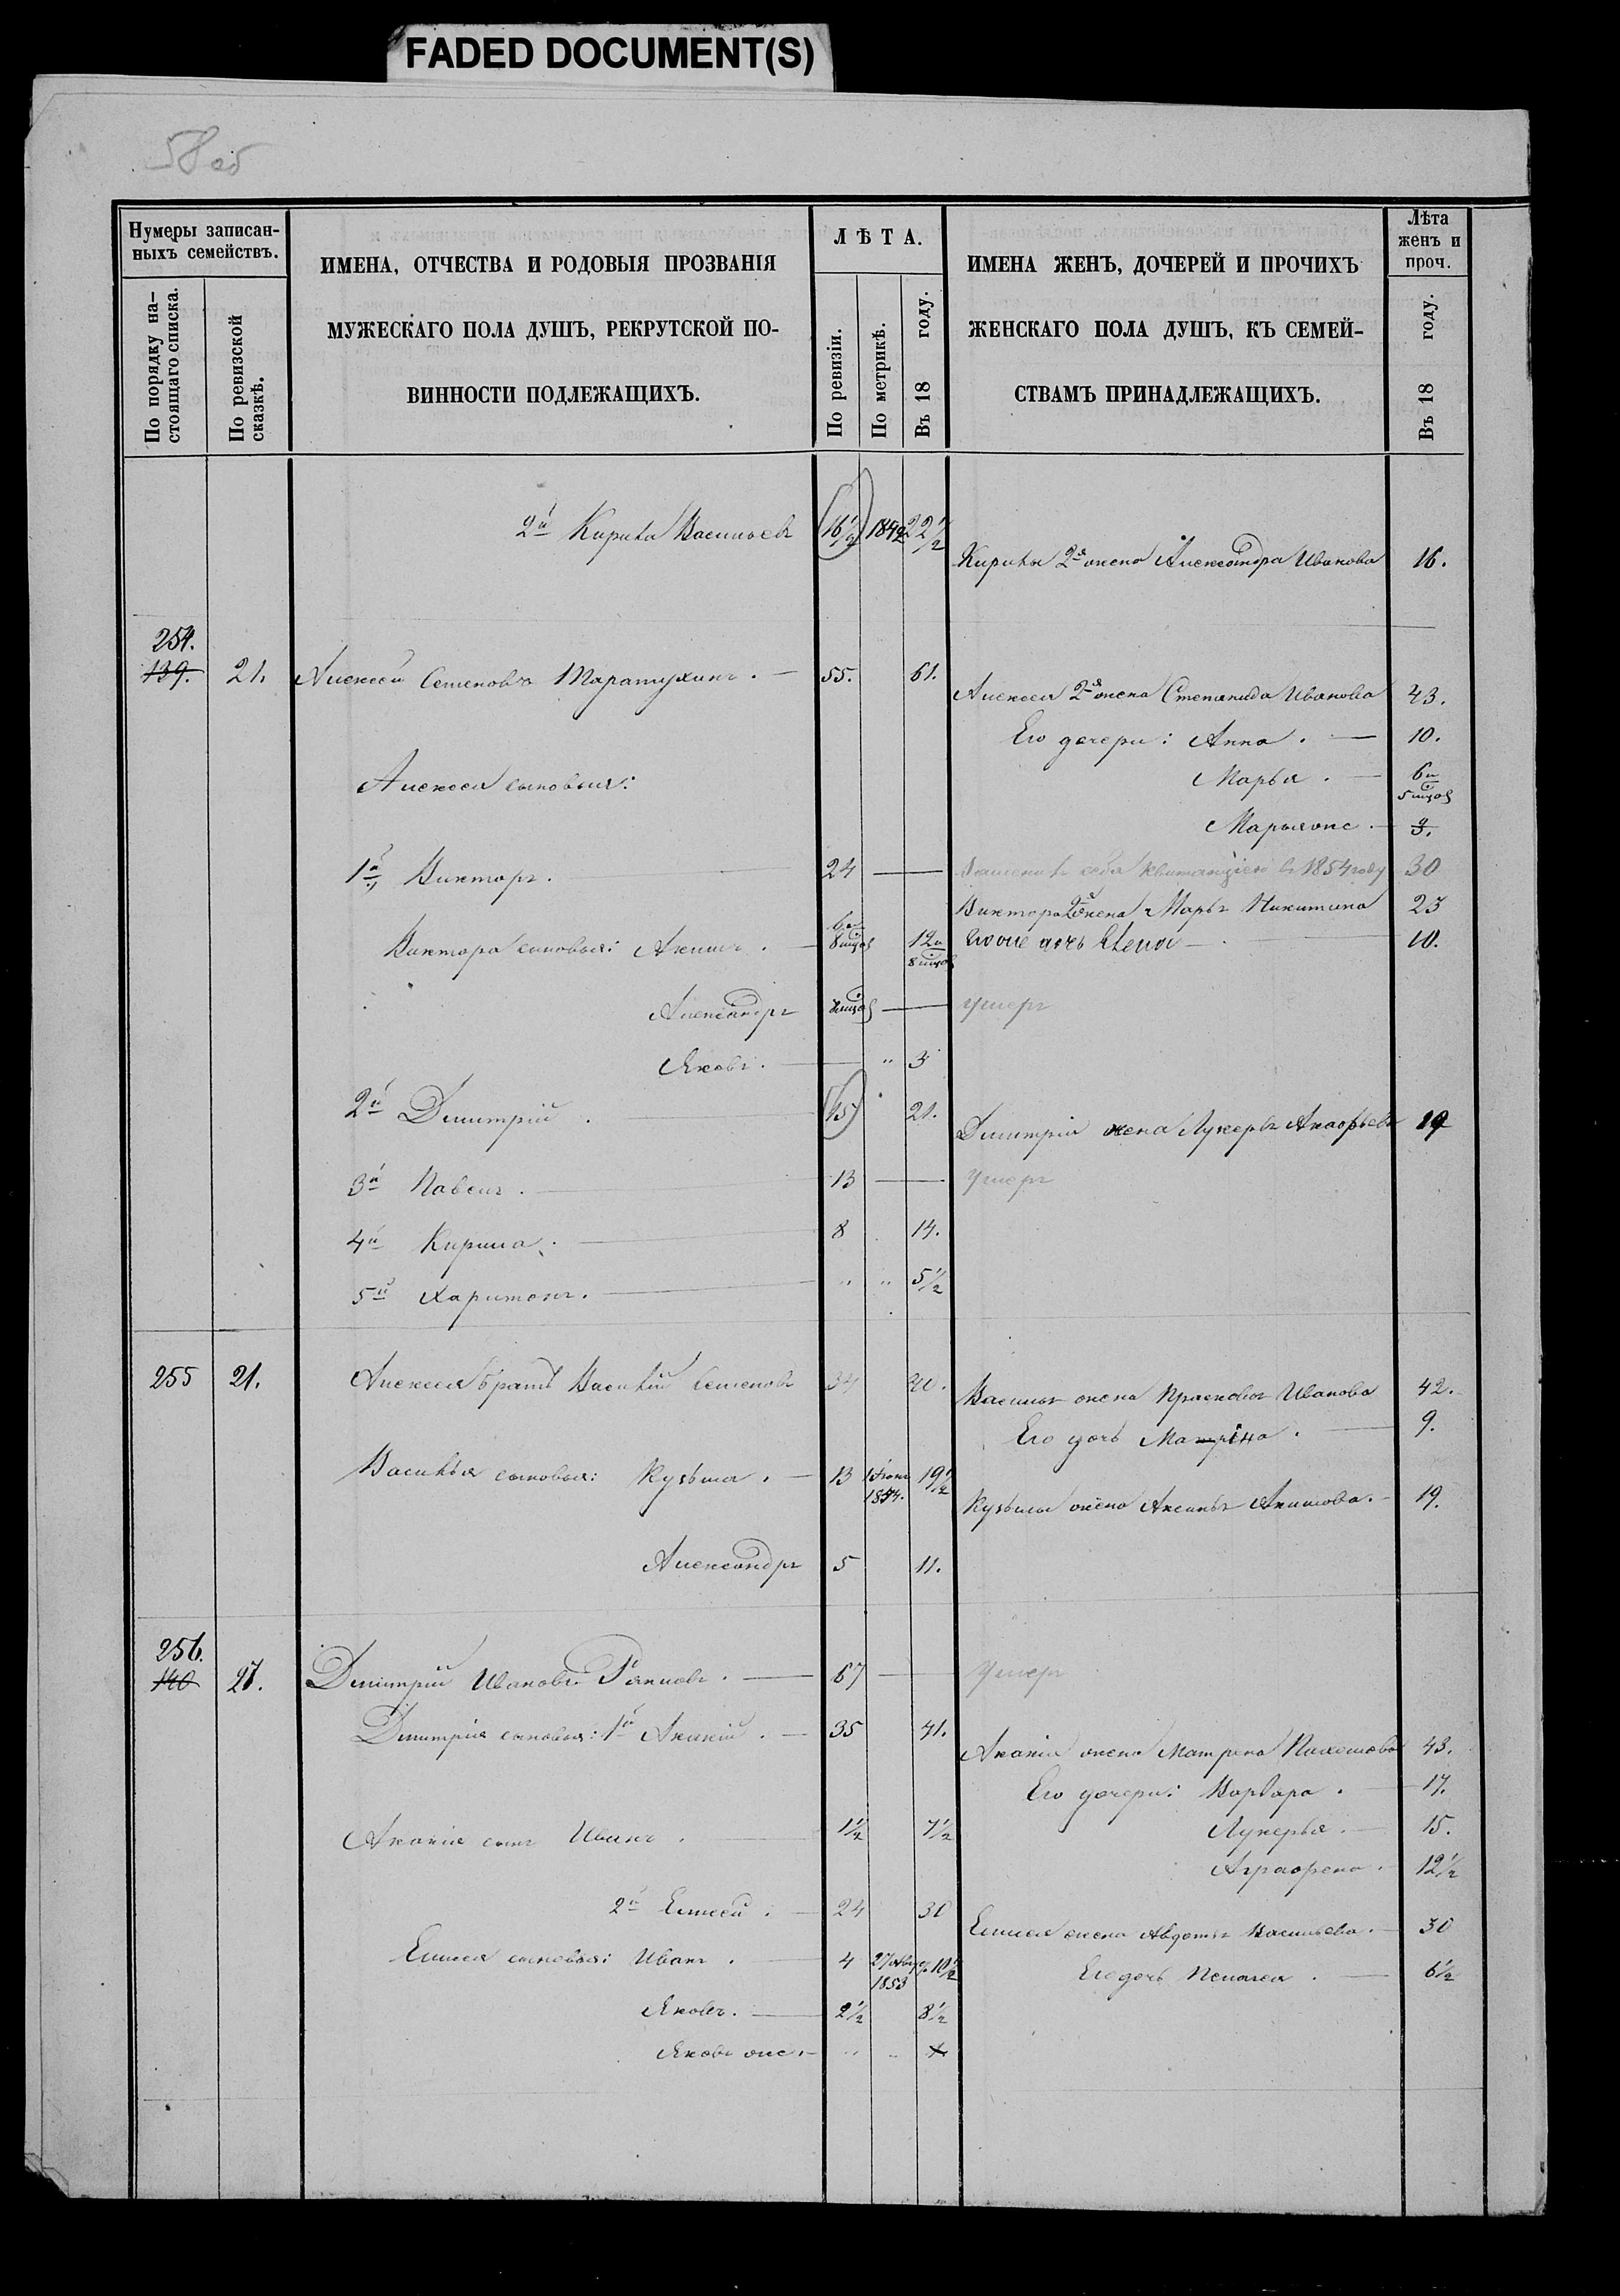 FADED DOCUMENT(S)
58 об
Нумеры записан-
ныхъ семействъ.
По порядку на-
стоящаго списка.
По ревизской
сказкѣ.
ИМЕНА, ОТЧЕСТВА И РОДОВЫЯ ПРОЗВАНІЯ
МУЖЕСКАГО ПОЛА ДУШЪ, РЕКРУТСКОЙ ПО-
ВИННОСТИ ПОДЛЕЖАЩИХЪ.
ЛѢТА.
По ревизіи.
По метрикѣ.
Въ 18 году.
ИМЕНА ЖЕНЪ, ДОЧЕРЕЙ И ПРОЧИХЪ
ЖЕНСКАГО ПОЛА ДУШЪ, КЪ СЕМЕЙ-
СТВАМЪ ПРИНАДЛЕЖАЩИХЪ.
Лѣта
женъ и
проч.
Въ 18 году.
2й Кирила Васильевъ 16½ 1842 22½
Кирилы 2я жена Александра Иванова 16.
254.
139. 21. Алексей Семеновъ Таратухинъ. 55. 61.
Алексея 2я жена Степанида Иванова 43.
Его дочери: Анна. 10.
Алексея сыновья: Марья. 6 и 5 мцов
Марья же
1й Викторъ. 24 Заменилъ себя квитанціею въ 1854 году 30
Виктора жена Марья Никитина 23
Виктора сыновья: Акимъ. 6 и 8 мцов 12 и 8 мцов Его же дочь Елена 10.
Александръ умеръ
Яковъ. " 3
2й Дмитрій. 15 21.
Дмитрія жена Лукерья 19
3й Павелъ. 13 умеръ
4й Кирила. 8 14.
5й Харитонъ. " " 5½
255 21. Алексея братъ Василій Семеновъ 34 40.
Василья жена Прасковья Иванова 42.
Его дочь Матрена. 9.
Василья сыновья: Кузьма. 13 19½
Кузьмы жена Аксинья Акимова. 19.
Александръ 5 11.
256.
140 27. Дмитрій Ивановъ 67 умеръ
Дмитрія сыновья: 1й Акакій. 35 41.
Акакія жена Матрена Пахомова 43.
Его дочери: Варвара. 17.
Акакія сынъ Иванъ. 1½ 7½ Лукерья. 15.
Аграфена. 12½
2й Елисей. 24 30
Елисея жена Авдотья Васильева. 30
Елисея сыновья: Иванъ. 4 27 Авгу 1853 10½
Его дочь Пелагея. 6½
Яковъ. 2½ 8½
Яковъ же. " "